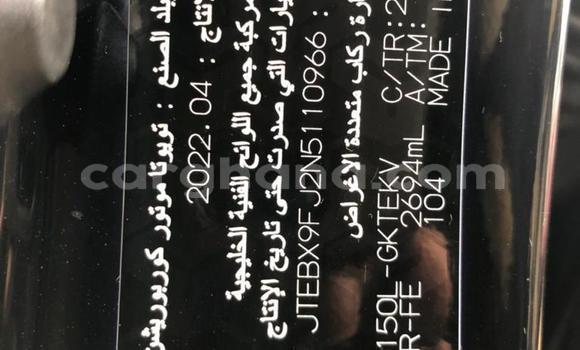 بلد الصنع : تويوتا موتور كوربوريشن
الإنتاج : 2022.04
المركبة جميع اللوائح الفنية الخليجية
التي صدرت حتى تاريخ الإنتاج
JTEBX9FJ2N5110966 :
ركاب متعددة الأغراض
150L-GKTEKV C/TR:2
R-FE 2694mL A/TM:
104 MADE I